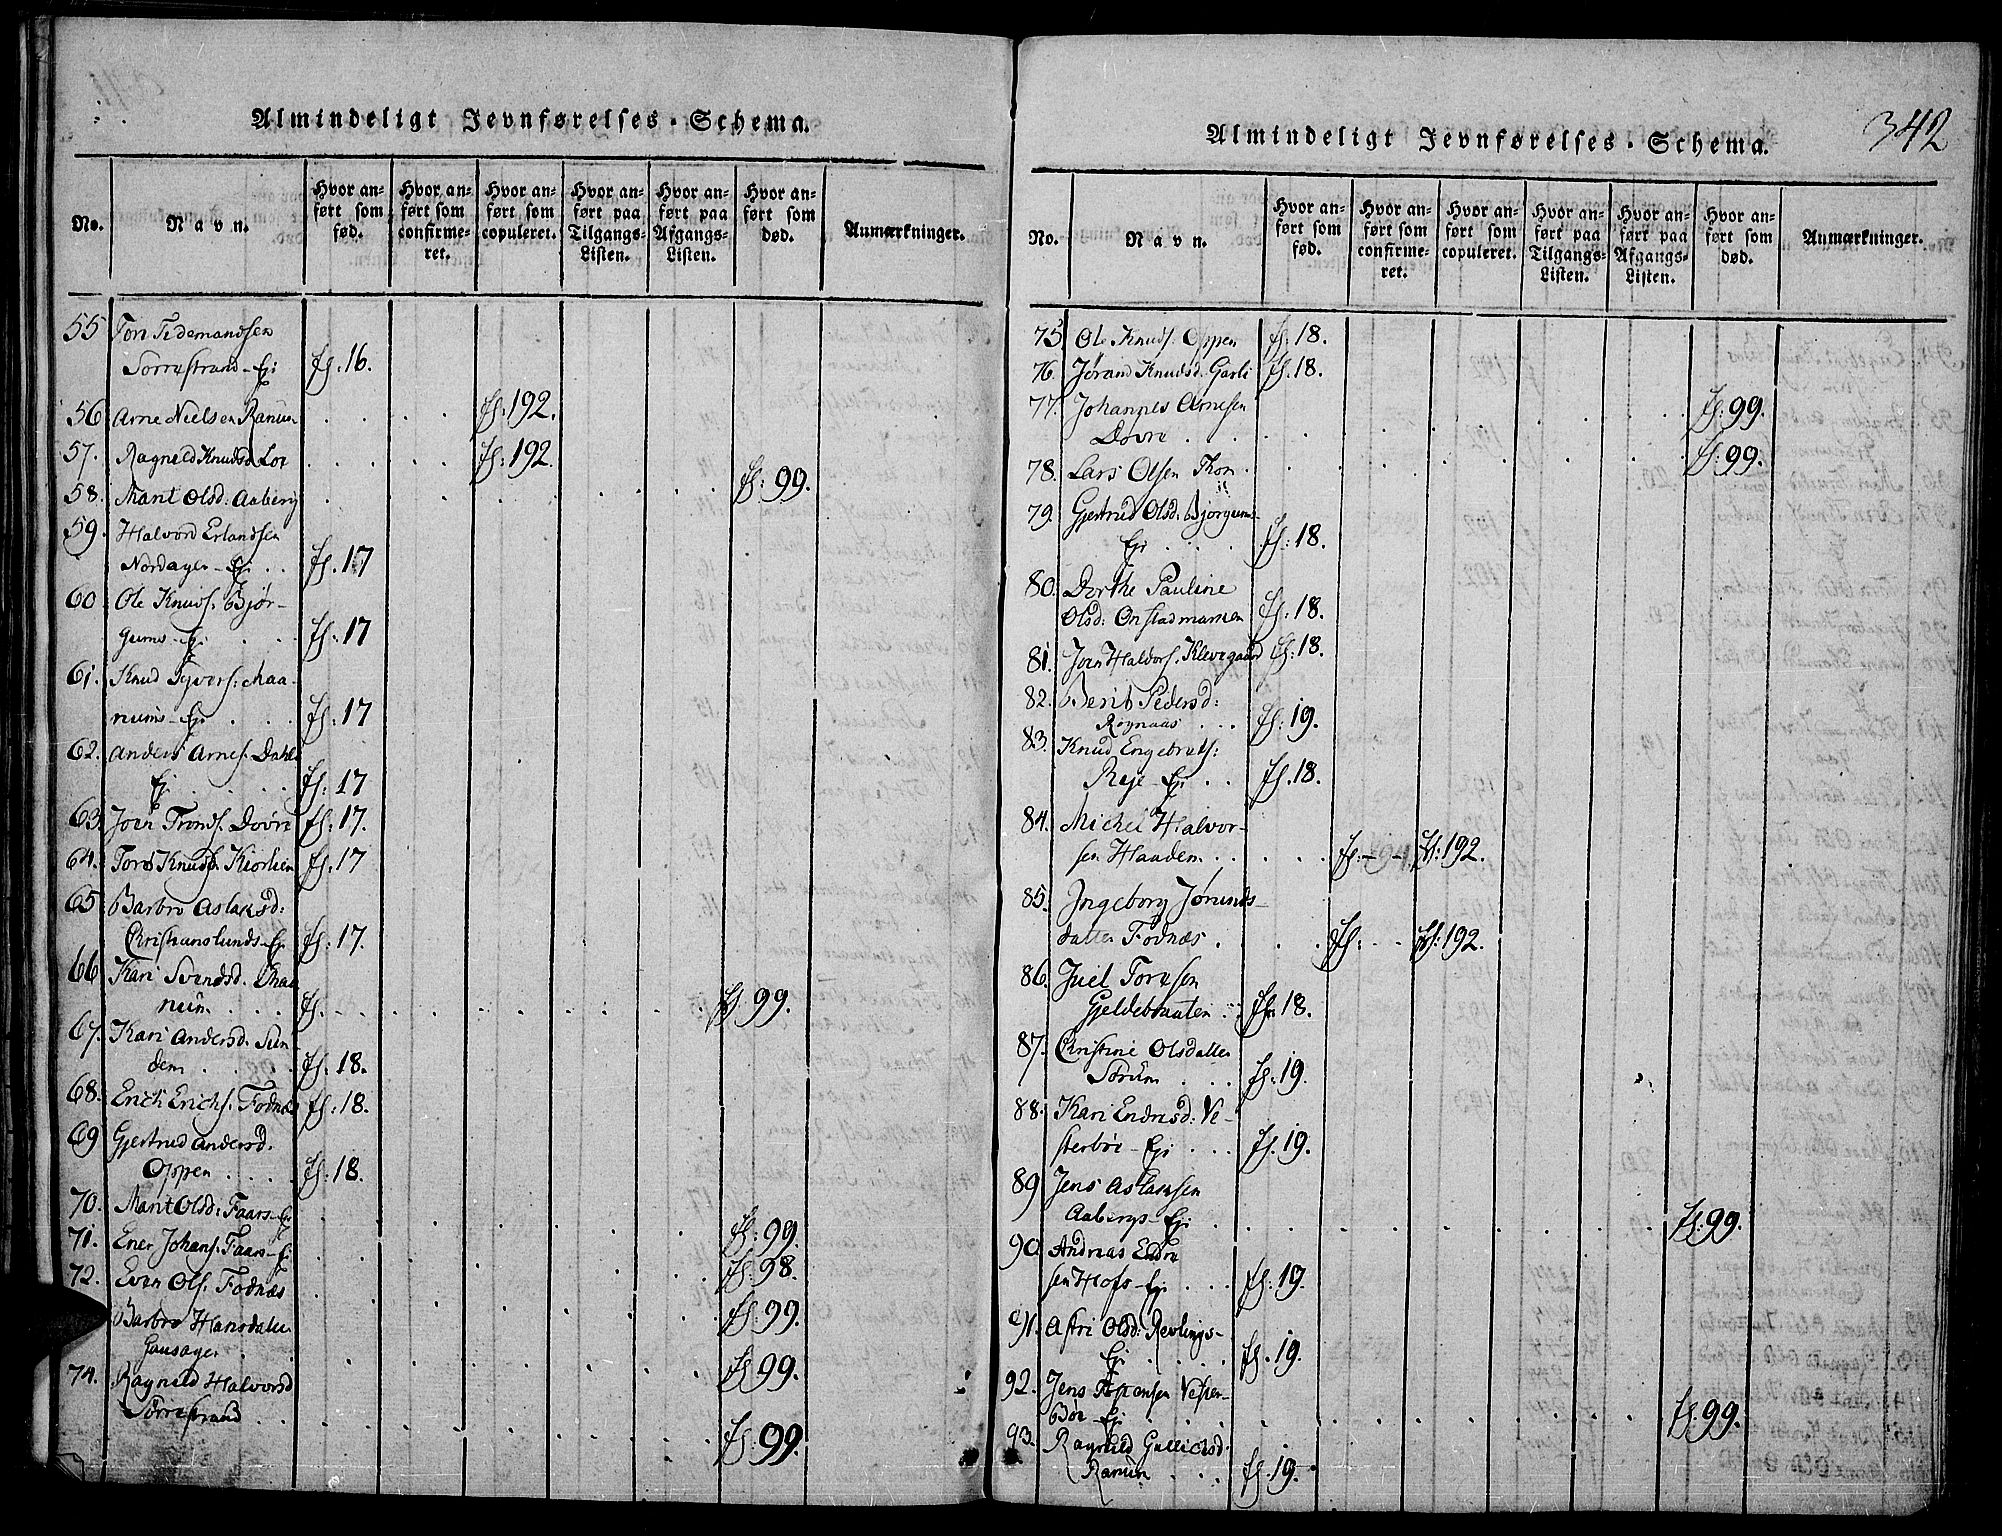 Almindeligt Jevnførelses-Schema.
No.
Navn.
Hvor anført som fød.
Hvor anført som confirmeret.
Hvor anført som copuleret.
Hvor anført paa Tilgangs-Listen.
Hvor anført paa Afgangs-Listen.
Hvor anført som død.
Anmærkninger.
55 Tore Tidemandsen
Sørrestrand-Eje fS. 16.
56 Arne Nielsen Ranum fS: 192.
57. Ragnild Knudsd. Loe fS: 192.
58. Marit Olsd: Aaberg fS: 99.
59. Halvord Erlandsen
Nordager-Eje fS. 17
60 Ole Knuds. Bjør-
gums-Eje fS: 17
61. Knud Syvers: Maa-
nums-Eje fS: 17
62. Anders Arnes. Dahle
Eje fS: 17
63. Joen Tronds. Dovre fS: 17.
64. Tore Knuds. Kiorlien fS: 17
65 Barbro Aslaksd:
Christianslunds-Eje fS: 17.
66 Kari Svendsd. Maa
num fS. fS 99.
67. Kari Andersd. Sun-
dem fS. 18.
68. Erich Erichs. Fodnæs fS. 18.
69 Gjertrud Andersd.
Oppen fS: 18.
70. Marit Olsd: Faars-Eje fS: 99.
71. Ener Johans. Faars-Eje fS: 98.
72. Even Ols. Fodnæs fS: 99.
Barbro Hansdatter
Gausager fS: 99.
74. Ragnild Halvorsd
Sørrestrand fS: 99.
342
Almindeligt Jevnførelses-Schema.
No.
Navn.
Hvor anført som fød.
Hvor anført som confirmeret.
Hvor anført som copuleret.
Hvor anført paa Tilgangs-Listen.
Hvor anført paa Afgangs-Listen.
Hvor anført som død.
Anmærkninger.
75 Ole Knuds. Oppen fS: 18.
76. Jørand Knudsd. Garli fS. 18.
77. Johannes Arnesen
Dovre fS: 99.
78. Lars Olsen Thon fS: 99.
79. Gjertrud Olsd: Bjørgums-
Eje fS: 18.
80. Dorthe Pauline
Olsd: Onstadmarken fS: 18.
81. Joen Haldors. Klevegaard fS: 18.
82. Berit Pedersd:
Rognaas fS: 19.
83. Knud Engebrets:
Reje-Eje fS. 18.
84. Michel Halvor-
sen Haaden fS: fS: 192.
85. Ingeborg Jørunds-
datter Fodnæs fS: fS: 192.
86. Juel Toresen
Gjeldebraaten fS. 18.
87. Christine Olsdatter
Sørum fS: 19.
88. Kari Endresd: Ve-
sterbøe-Eje fS. 19.
89 Jens Aslaksen
Aabergs-Eje fS: 99.
90. Andreas Endre
sen Hofs-Eje fS: 19.
91. Astri Olsd: Revlings-
Eje fS. 19.
92. Jens Vester-
Bøe-Eje fS: 99.
93. Ragnild Gullichsd.
Ranum fS. 19.